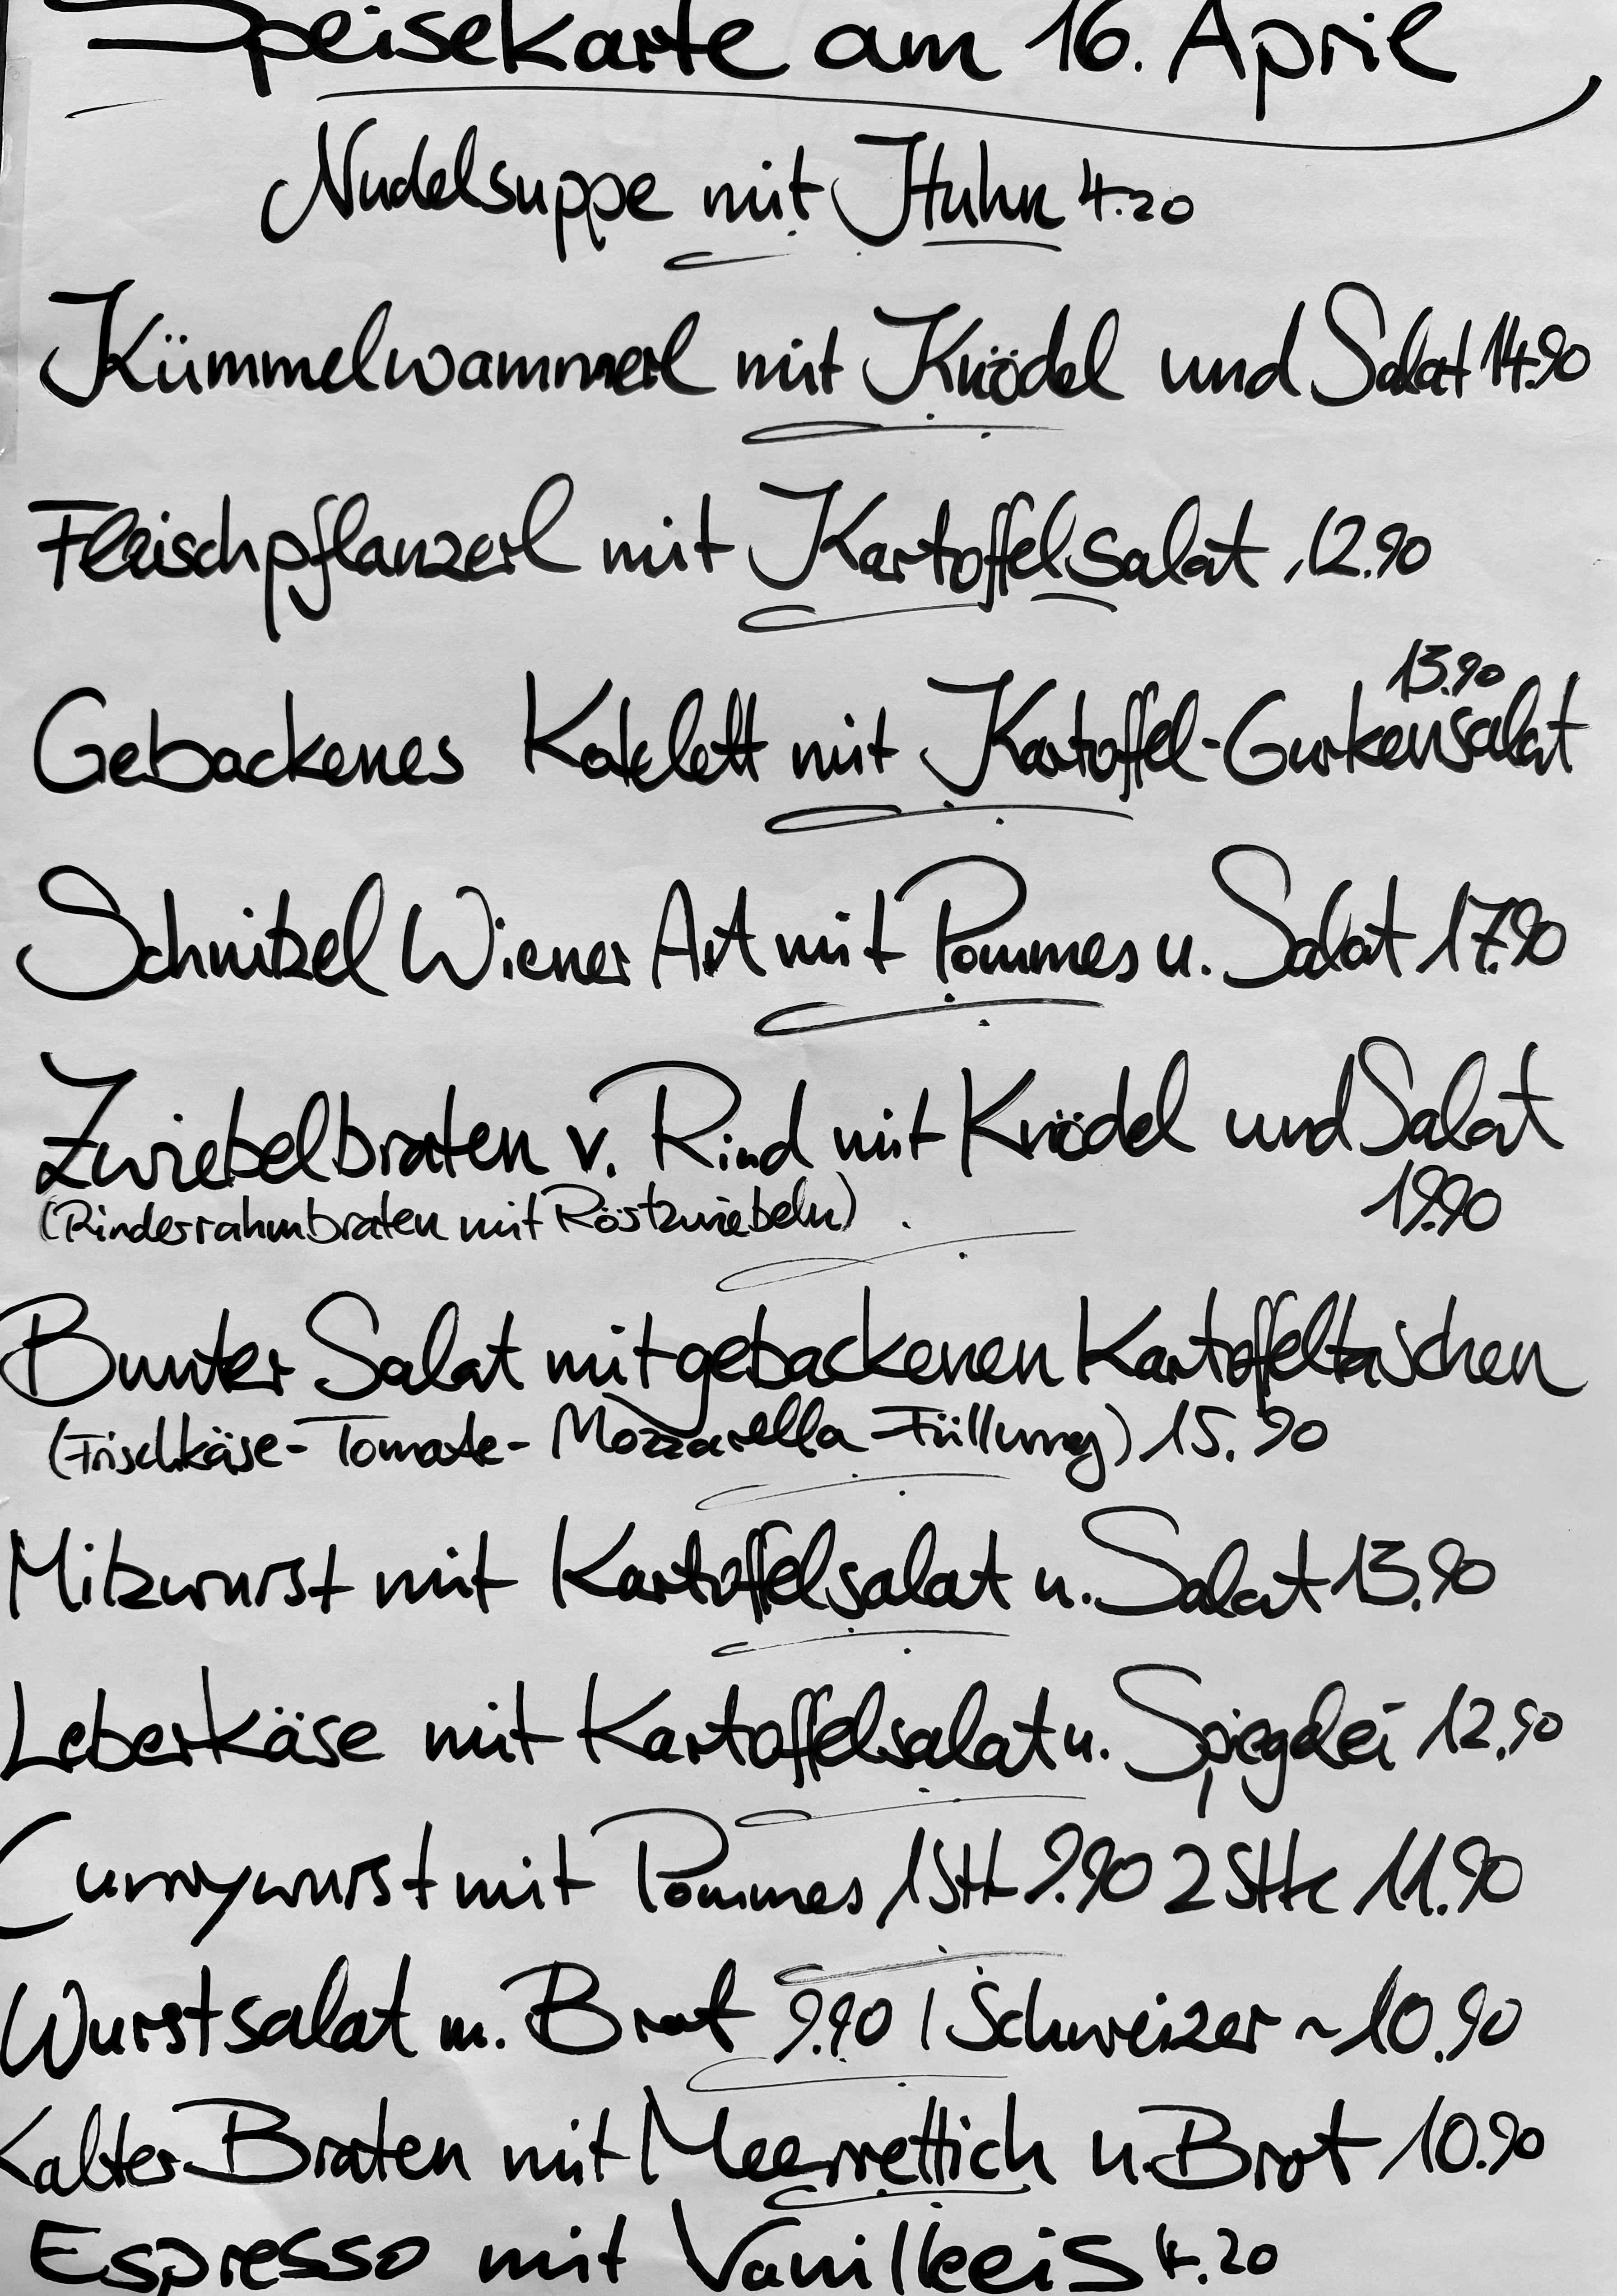 Speisekarte am 16. April
Nudelsuppe mit Huhn 4.20
Kümmelwammerl mit Knödel und Salat 14.90
Fleischpflanzerl mit Kartoffelsalat 12.90
13.90
Gebackenes Kotelett mit Kartoffel-Gurkensalat
Schnitzel Wiener Art mit Pommes u. Salat 17.90
Zwiebelbraten v. Rind mit Knödel und Salat
(Rinderrahmbraten mit Röstzwiebeln) 19.90
Bunter Salat mit gebackenen Kartoffeltaschen
(Frischkäse-Tomate-Mozzarella-Füllung) 15.90
Milzwurst mit Kartoffelsalat u. Salat 13.90
Leberkäse mit Kartoffelsalat u. Spiegelei 12.90
Currywurst mit Pommes 1 Stk 9.90 2 Stk 11.90
Wurstsalat m. Brot 9.90 / Schweizer ~ 10.90
Kalter Braten mit Meerrettich u. Brot 10.90
Espresso mit Vanilleeis 4.20